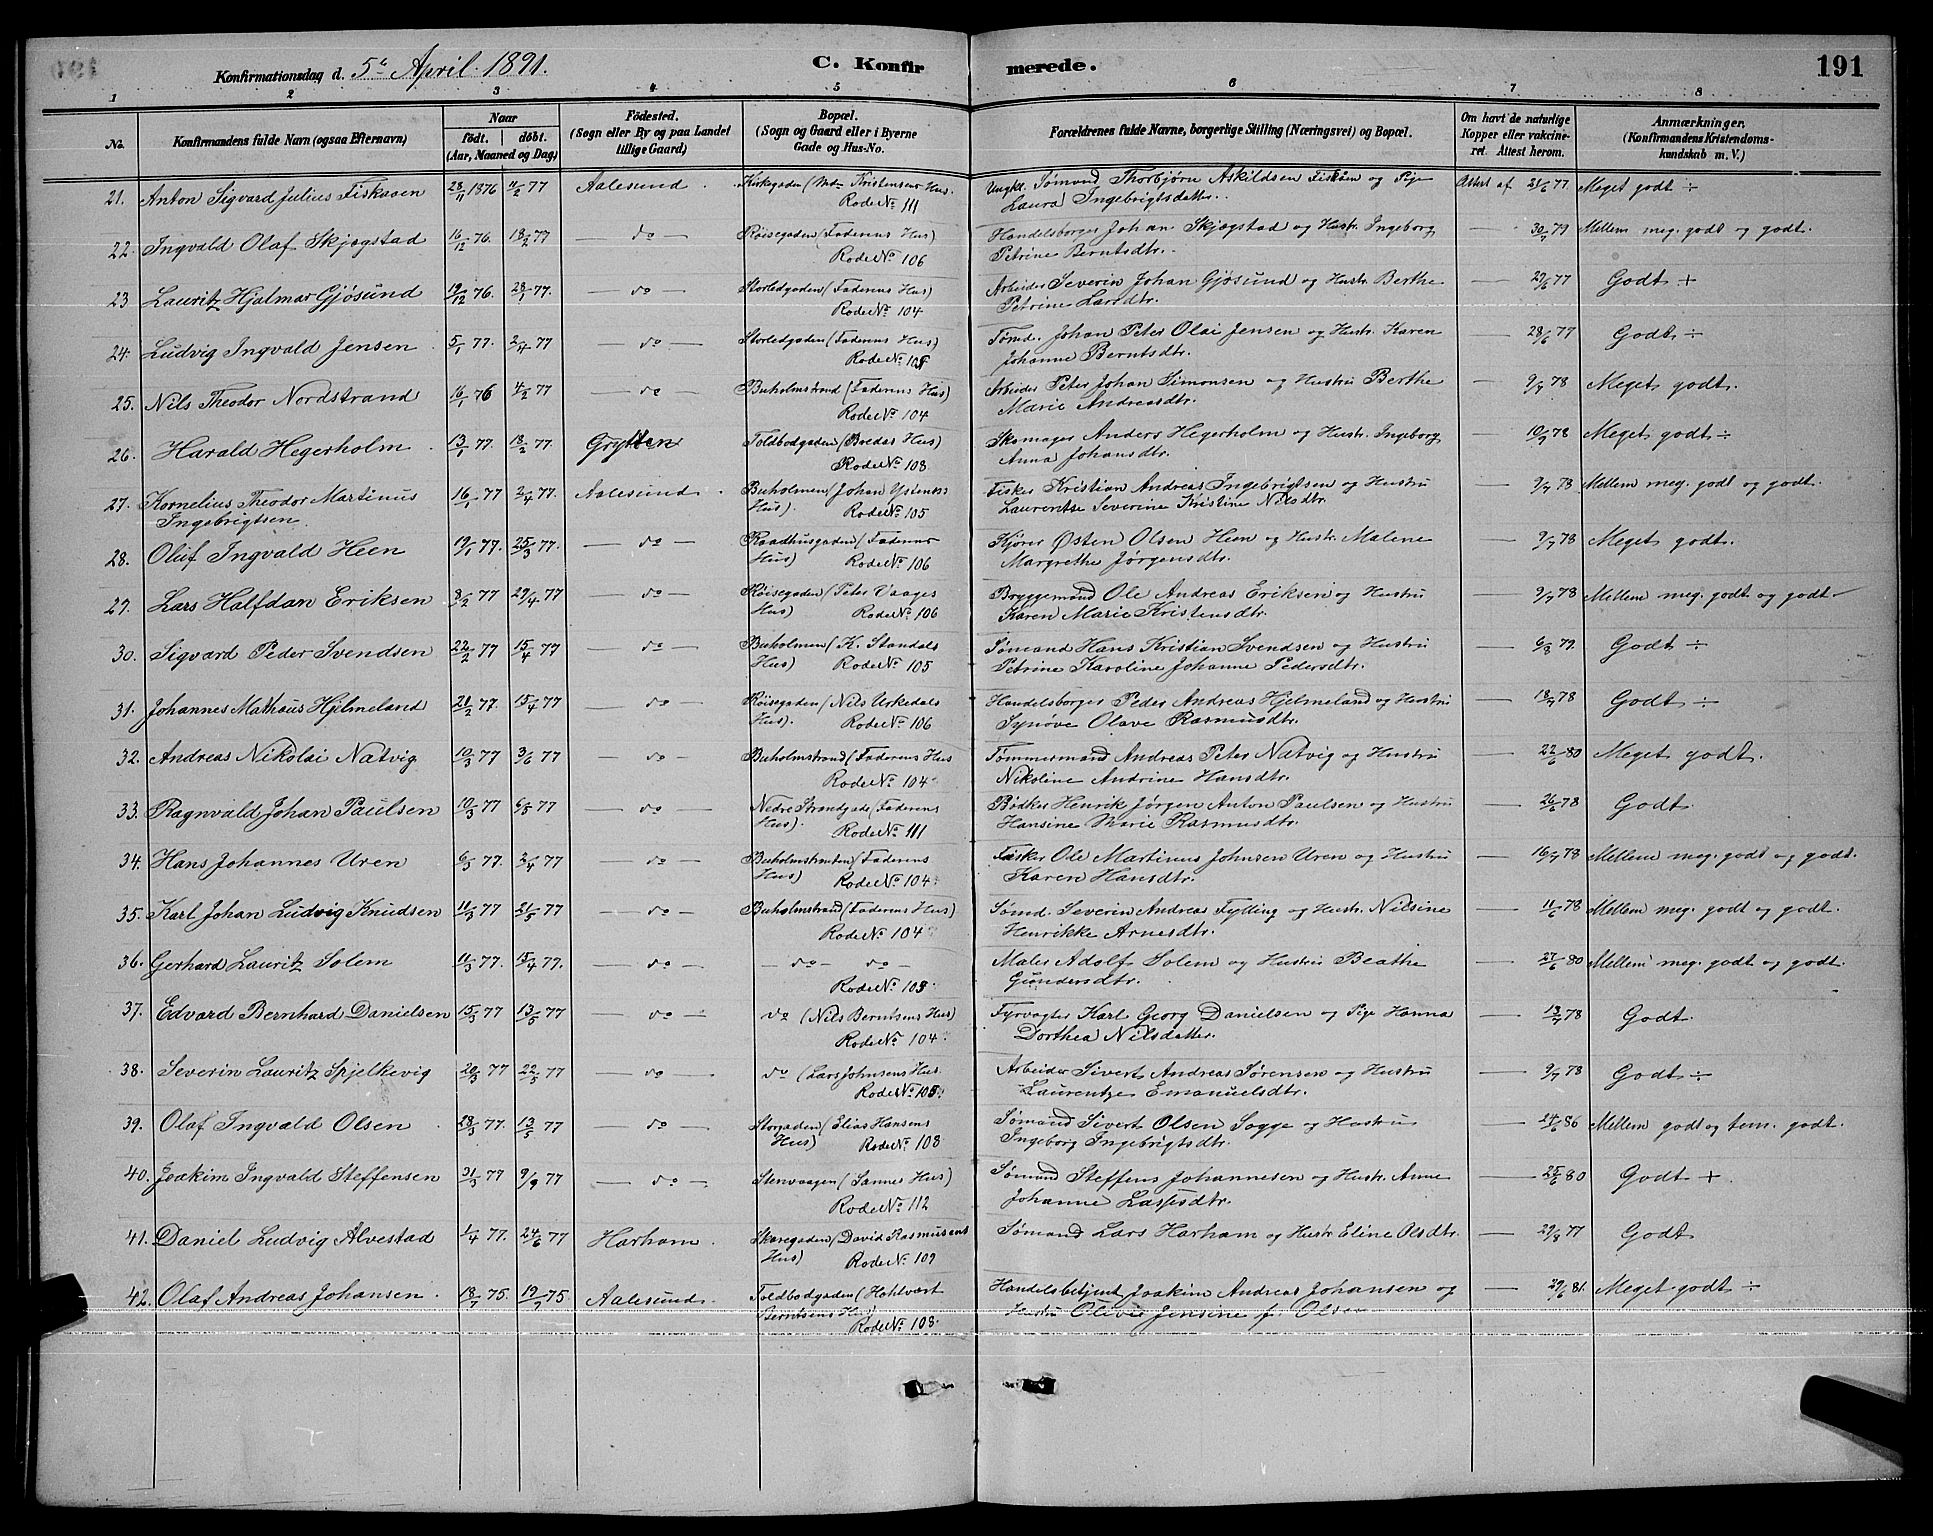 Konfirmationsdag d. 5te April 1891.
C. Konfirmerede.
191
1 2 3 4 5 6 7 8
No.
Konfirmandens fulde Navn (ogsaa Efternavn)
Naar
født. døbt.
(Aar, Maaned og Dag)
Fødested.
(Sogn eller By og paa Landet
tillige Gaard)
Bopæl.
(Sogn og Gaard eller i Byerne
Gade og Hus-No.
Forældrenes fulde Navne, borgerlige Stilling (Næringsvei) og Bopæl.
Om havt de naturlige
Kopper eller vakcine-
ret. Attest herom.
Anmærkninger,
(Konfirmandens Kristendoms-
kundskab m. V.)
21. Anton Sigvard Julius Fiskaaen 28/11 1876 11/2 77 Aalesund. Kirkegaden (Mdm Kristensens Hus. Ungkl. Sømand Thorbjørn Askildsen Fiskåen og Pige Attest af 21/6 77 Meget godt ÷
Rode No 111 Laura Ingebrigtsdatter.
22. Ingvald Olaf Skjegstad 16/12 76. 18/2 77 — do — Røisegaden (Faderens Hus) Handelsborger Johan Skjegstad og Hustr. Ingeborg — 30/7 79 Mellem meg. godt og godt.
Rode No 106 Petrine Berntsdtr.
23 Lauritz Hjalmar Gjøsund 19/12 76. 28/1 77. — do — Storledgaden (Faderens Hus) Arbeider Severin Johan Gjøsund og Hustr. Berthe — 29/6 77 Godt +
Rode No 104 Petrine Larsdtr.
24. Ludvig Ingvald Jensen 5/1 77. 2/4 77 — do — Storledgaden (Faderens Hus) Tømd. Johan Peter Olai Jensen og Hustr. Karen — 28/6 77 Godt ÷
Rode No 105 Johanne Berntsdtr.
25. Nils Theodor Nordstrand 16/1 76 4/2 77 — do — Buholmstrand (Faderens Hus) Arbeider Peter Johan Simonsen og Hustru Berthe — 9/7 78 Meget godt.
Rode No 104 Marie Andreasdtr.
26. Harald Hegerholm 13/1 77. 18/2 77. Grytten Toldbodgaden (Boedas Hus) Skomager Anders Hegerholm og Hustr. Ingeborg — 10/7 78 Meget godt ÷
Rode No 108 Anna Johansdtr.
27. Kornelius Theodor Martinus 16/1 77 2/4 77. Aalesund. Buholmen (Johan Ystenes Fisker Kristian Andreas Ingebrigtsen og Hustru — 9/7 78 Mellem meg. godt og godt.
Ingebrigtsen Hus). Rode No 105 Laurentse Severine Kristine Nilsdtr.
28. Oluf Ingvald Heen 19/1 77. 25/3 77. — do — Raadhusgaden (Faderens Kjører Østen Olsen Heen og Hustr. Malene — 9/7 78 Meget godt.
Hus) Rode No 106 Margrethe Jørgensdtr.
29. Lars Halfdan Eriksen 8/2 77 29/4 77 — do — Røisegaden (Peter Vaages Bryggemand Ole Andreas Eriksen og Hustru — 9/7 78 Mellem meg. godt og godt
Hus) Rode No 106 Karen Marie Kristensdtr.
30. Sigvard Peder Svendsen 22/2 77 15/4 77 — do — Buholmen (K. Standals Sømand Hans Kristian Svendsen og Hustru — 6/8 79. Godt ÷
Hus) Rode No 105 Petrine Karoline Johanne Pedersdtr.
31. Johannes Mathæus Hjelmeland 21/2 77. 15/4 77 — do — Røisegaden (Nils Urkedals Handelsborger Peder Andreas Hjelmeland og Hustru — 18/7 78 Godt ÷
Hus). Rode No 106 Synøve Olave Rasmusdtr.
32. Andreas Nikolai Natvig 10/3 77 3/6 77 — do — Buholmstrand (Faderens Hus Tømmermand Andreas Peter Natvig og Hustru — 22/6 80 Meget godt.
Rode No 104 Nikoline Andrine Hansdtr.
33. Ragnvald Johan Paulsen 10/3 77 6/5 77 — do — Nedre Strandgade (Faderens Bødker Henrik Jørgen Anton Paulsen og Hustru — 26/6 78 Godt
Hus). Rode No 111 Hansine Marie Rasmusdtr.
34. Hans Johannes Uren 6/3 77. 2/4 77 — do — Buholmstranden (Faderens Fisker Ole Martinus Johnsen Uren og Hustru — 16/7 78 Mellem meg. godt og godt.
Hus) Rode No 104 Karen Hansdtr.
35. Karl Johan Ludvig Knudsen 11/3 77 21/5 77 — do — Buholmstrand (Faderens Hus) Sømd. Severin Andreas Fylling og Hustr. Nilsine — 11/6 78 Mellem meg. godt og godt.
Rode No 104 Henrikke Arnesdtr.
36. Gerhard Lauritz Solem 11/3 77. 15/4 77. — do — — do — do — Maler Adolf Solem og Hustru Beathe — 27/6 80 Mellem meg. godt og godt.
Rode No 105 Gundersdtr.
37. Edvard Bernhard Danielsen 15/3 77 13/5 77 — do — do (Nils Berntsens Hus) Fyrvogter Karl Georg Danielsen og Pige Hanna — 13/7 78 Godt.
Rode No 104 Dorthea Nilsdatter.
38. Severin Lauritz Spjelkevig 20/3 77 22/5 77 — do — do (Lars Johnsens Hus. Arbeider Sivert Andreas Sørensen og Hustru — 9/7 78 Godt ÷
Rode No 105 Laurentze Emanuelsdtr.
39. Olaf Ingvald Olsen 23/3 77. 13/5 77 — do — Storgaden (Elias Hansens Sømand Sivert Olsen Sogge og Hustru — 24/6 86 Mellem godt og tem. godt.
Hus) Rode No 108 Ingeborg Ingebrigtsdtr.
40. Joakim Ingvald Steffensen 31/3 77 9/9 77 — do — Stenvaagen (Sannes Hus) Sømand Steffens Johannesen og Hustr. Anne — 25/6 80 Godt +.
Rode No 112 Johanne Larsdtr.
41. Daniel Ludvig Alvestad 1/4 77. 24/6 77 Harham. Skaregaden (David Rasmusens Sømand Lars Harham og Hustr. Eline Olsdtr. — 29/8 77 Godt
Hus) Rode No 109
42. Olaf Andreas Johansen. 18/7 75. 19/9 75 Aalesund. Toldbodgaden (Hahlvart Handelsbetjent Joakim Andreas Johansen og — 29/6 81. Meget godt ÷
Berntsens Hus) Rode No 108 Hustru Olivie Jensine f. Olsen